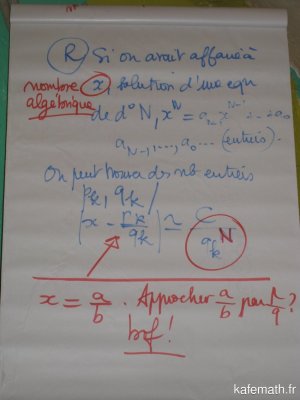 (R) Si on avait affaire à
nombre algébrique x, solution d'une eqn
de d° N, x^N = a_{N-1} x^{N-1} ... a_0
a_{N-1}, ..., a_0 ... (entiers).
On peut trouver des nb entiers
p_k, q_k /
|x - p_k/q_k| ≃ C/q_k^N
x = a/b . Approcher a/b par p/q ?
bof !
kafemath.fr